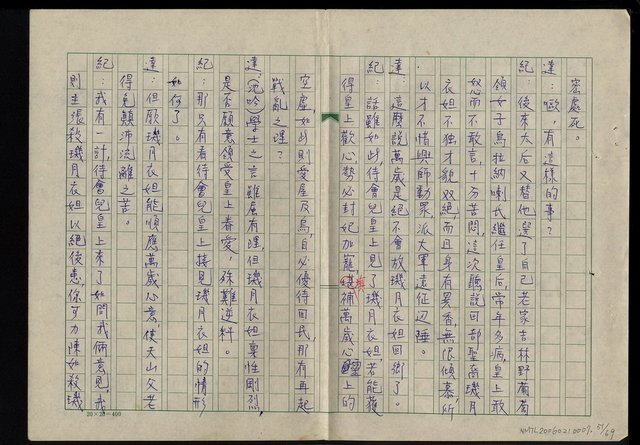 密處死。
達：噢，有這樣的事？
紀：後來太后又替他選了自己老家吉林野蘭蔔
領女子烏拉納喇氏繼任皇后，常年多病，皇上敢
怒而不敢言，十分苦悶，這次聽說回部聖裔璣月
衣妲不独才貌双絕，而且身有異香，無限傾慕所
以才不惜興師動眾派大軍遠征辺陲。
達：這麼說萬歲是絕不會放璣月衣妲回鄉了。
紀：話雖如此，待會兒皇上見了璣月衣妲，若能獲
得皇上歡心勢必封妃加寵，填補萬歲心靈上的
空虛，如此則愛屋及烏，自必優待回民，那有再起
戰亂之理？
達：（沉吟）學士之言雖属有理，但璣月衣妲稟性剛烈，
是否願意領受皇上眷愛，殊難逆料。
紀：那只有看待會兒皇上接見璣月衣妲的情形
如何了。
達：但願璣月衣妲能順應萬歲心意，使天山父老
得免顛沛流離之苦。
紀：我有一計，待會兒皇上來了如問我倆意見，我
則主張殺璣月衣妲以絕後患，你可力陳如殺璣
20×20=400
NMTL20060210007. 51/69